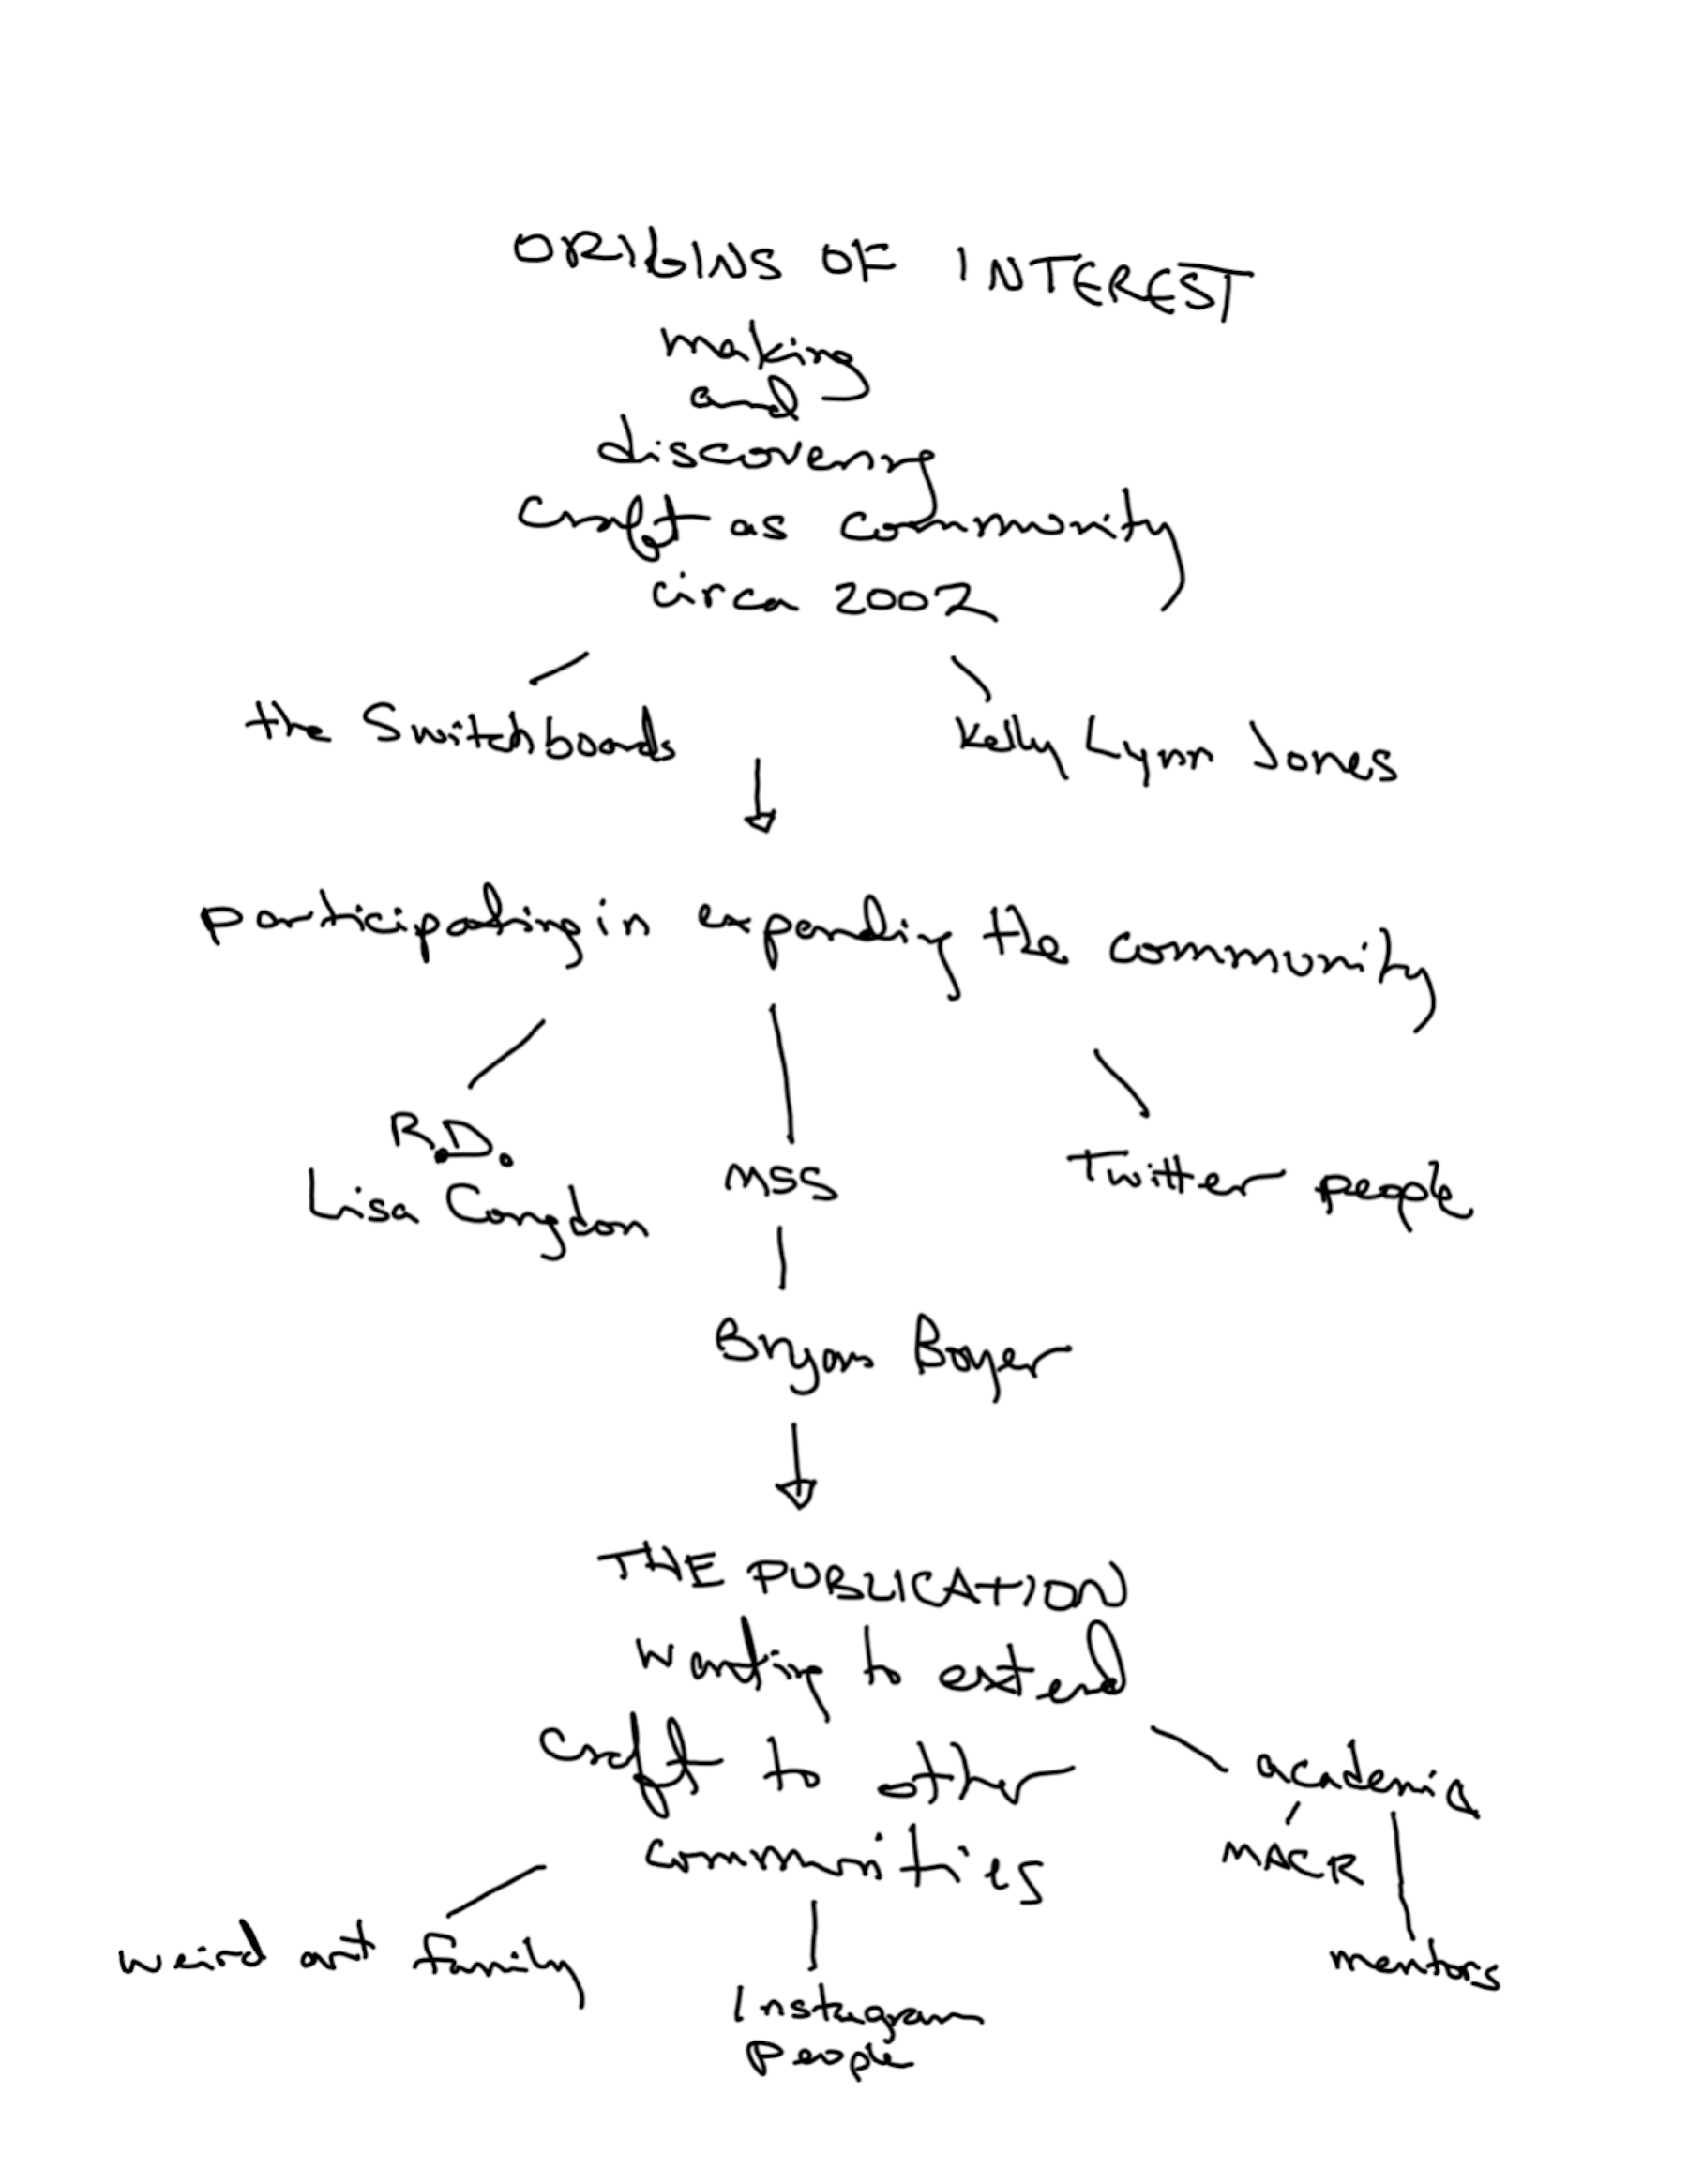 ORIGINS OF INTEREST
making
and
discovering
craft as community
circa 2002
the Switchboards
Kelly Lynn Jones
participating in expanding the community
R.D.
Lisa Congdon
MSS
Twitter people
Bryan Boyer
THE PUBLICATION
wanting to extend
craft to other
communities
academia
MACR
mentors
weird art family
Instagram
people